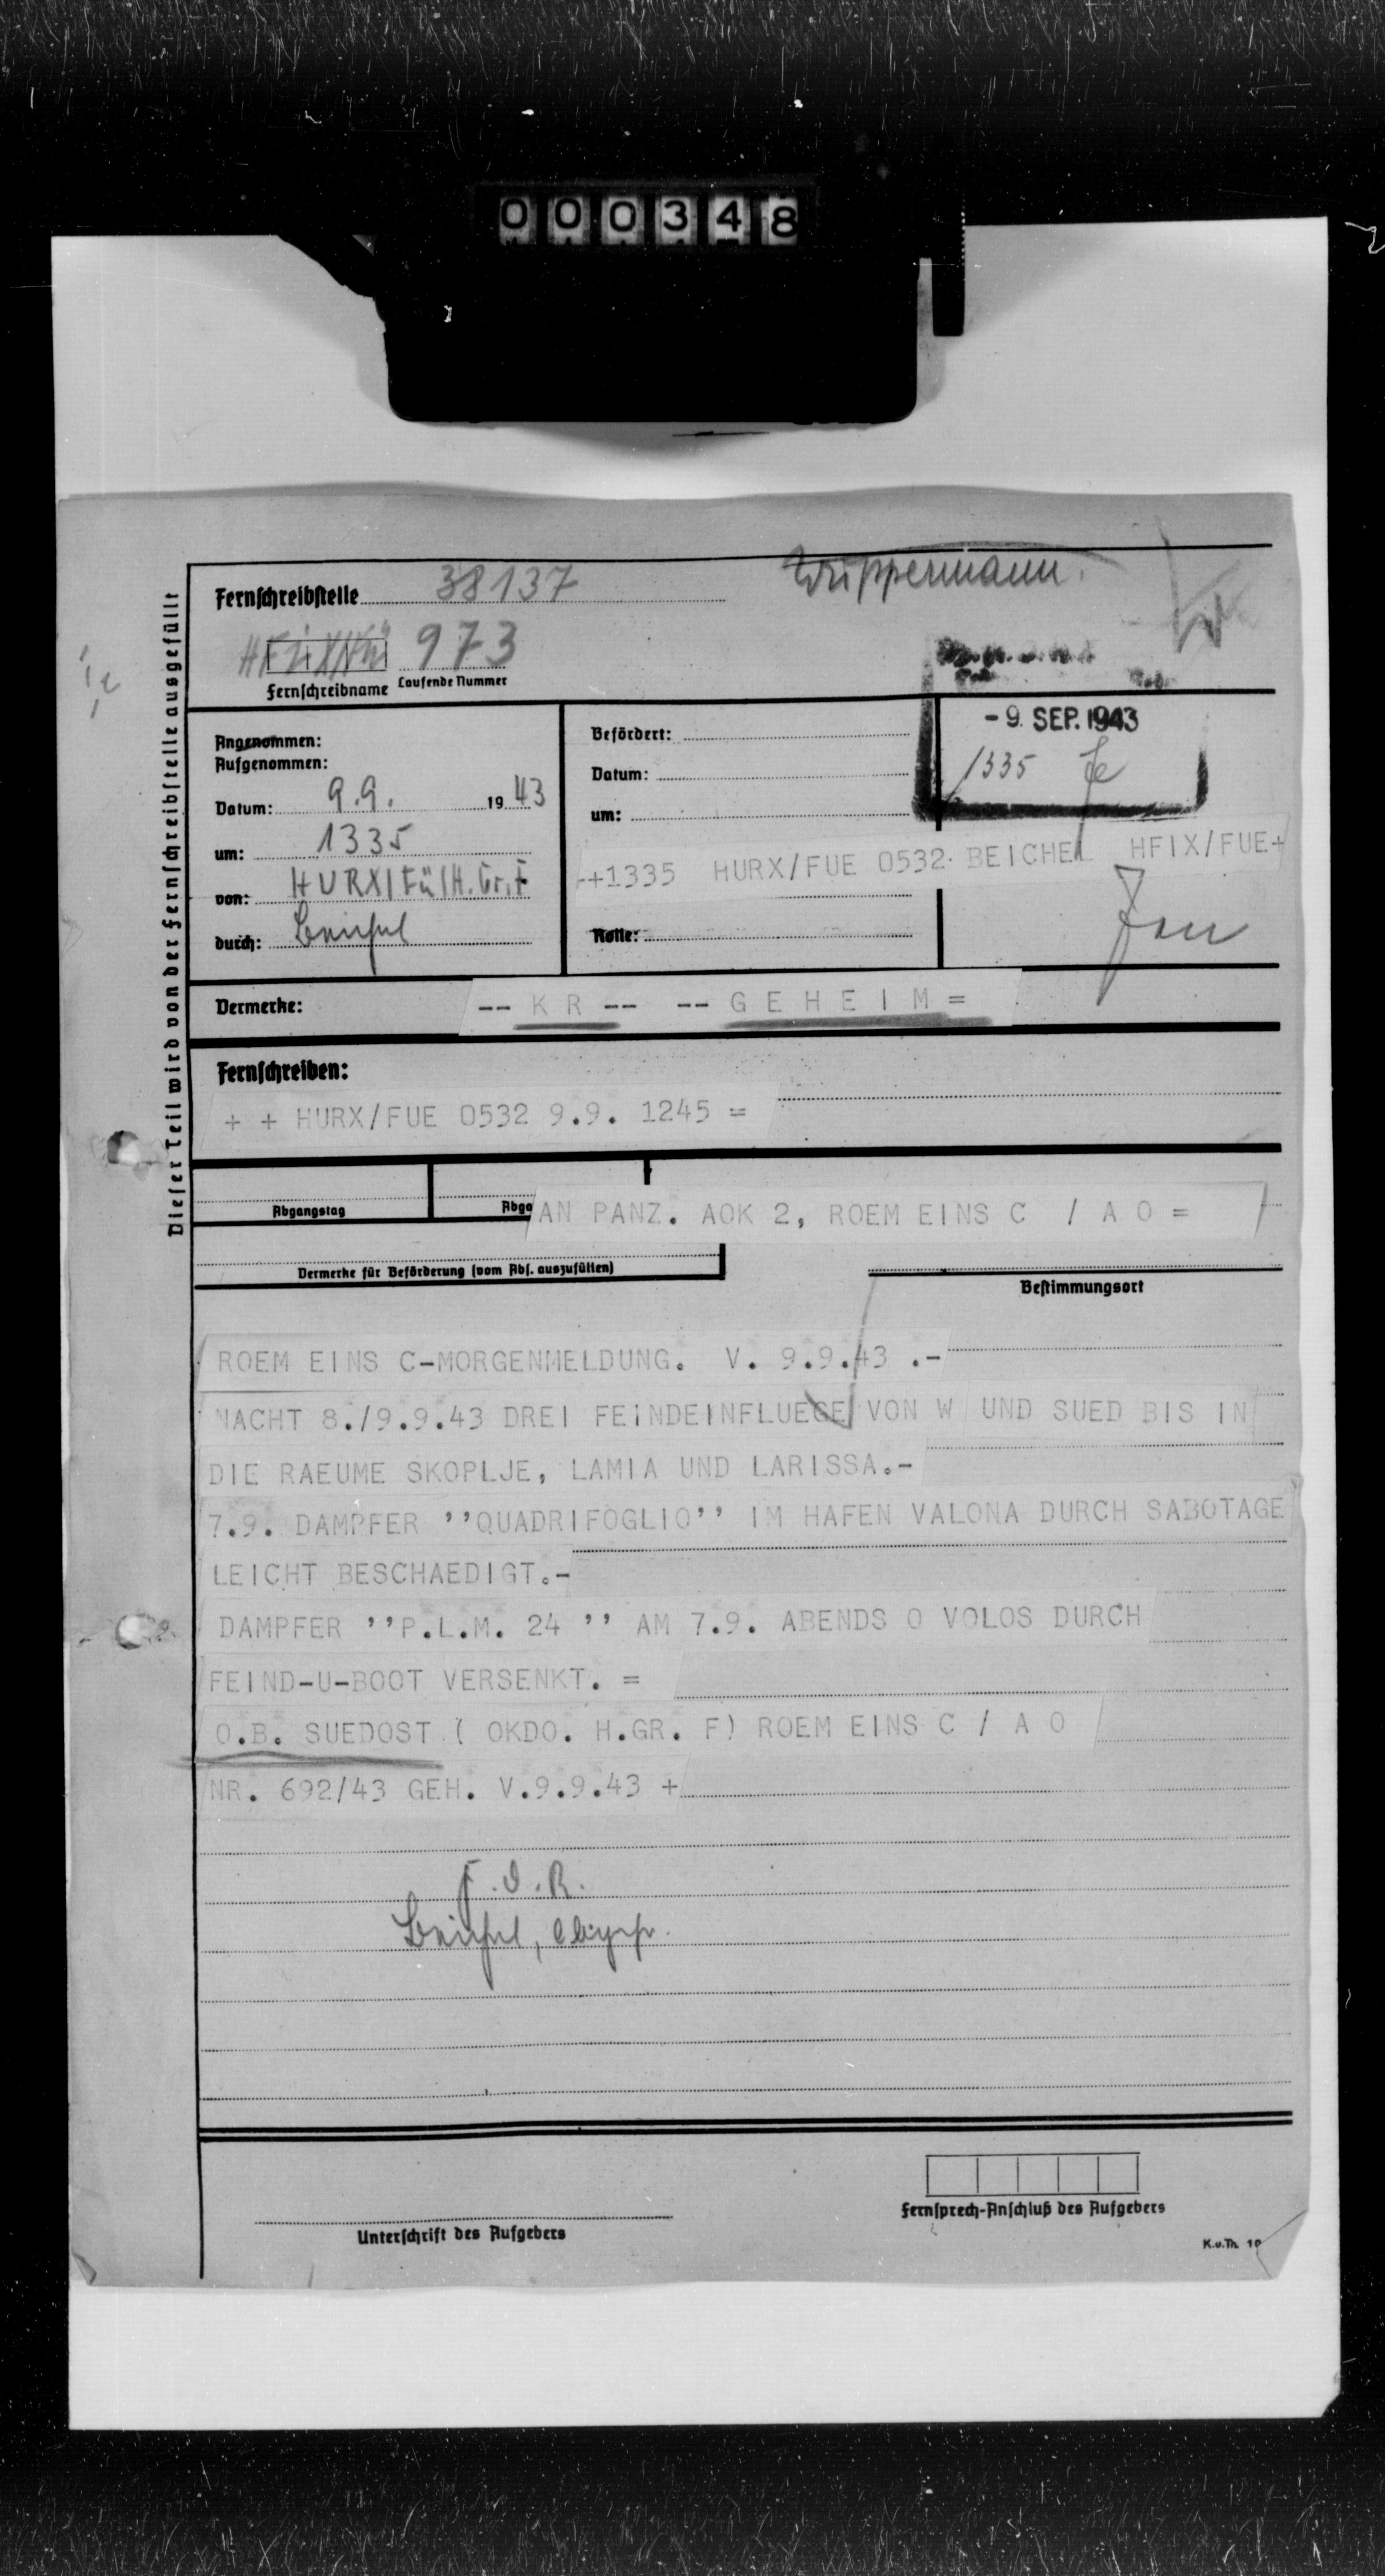 000348
Fernschreibstelle 38137 Wuppermann.
HFIX/Fü 973
Fernschreibname Laufende Nummer
Dieser Teil wird von der Fernschreibstelle ausgefüllt
Angenommen:
Aufgenommen:
Datum: 9.9. 19 43
um: 1335
von: HURX/Fü/H.Gr.F
durch: Beichel
Befördert:
Datum:
um:
-9. SEP. 1943
1335
++1335 HURX/FUE 0532 BEICHEL HFIX/FUE+
Rolle:
Vermerke: -- K R -- -- G E H E I M =
Fernschreiben:
+ + HURX/FUE 0532 9.9. 1245 =
Abgangstag Abga AN PANZ. AOK 2, ROEM EINS C / A O =
Vermerke für Beförderung (vom Abs. auszufüllen)
Bestimmungsort
ROEM EINS C-MORGENMELDUNG. V. 9.9.43 .-
NACHT 8./9.9.43 DREI FEINDEINFLUEGE VON W UND SUED BIS IN
DIE RAEUME SKOPLJE, LAMIA UND LARISSA.-
7.9. DAMPFER ''QUADRIFOGLIO'' IM HAFEN VALONA DURCH SABOTAGE
LEICHT BESCHAEDIGT.-
DAMPFER ''P.L.M. 24 '' AM 7.9. ABENDS O VOLOS DURCH
FEIND-U-BOOT VERSENKT. =
O.B. SUEDOST ( OKDO. H.GR. F) ROEM EINS C / A O
NR. 692/43 GEH. V.9.9.43 +
F.d.R.
Beichel,
Unterschrift des Aufgebers
Fernsprech-Anschluß des Aufgebers
K.u.Th. 10